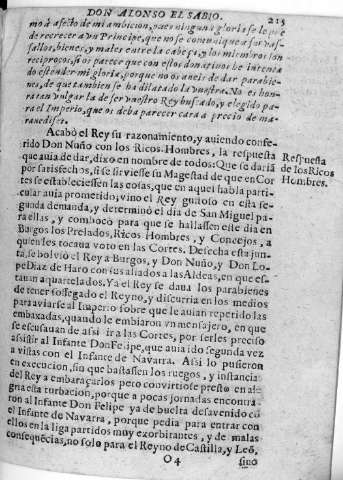 DON ALONSO EL SABIO. 215
mo à afecto de mi ambicion, pues ninguna gloria se le pue
de recrecer a vn Principe, que no se comunique a sus vas-
sallos, bienes, y males entre la cabeça, y los miembros son
reciprocos, si os parecer que con estos donatiuos he intenta
do estender mi gloria, porque no os aueis de dar parabie-
nes, de que tambien se ha dilatado la vuestra. No es hon-
ra tan vulgar la de ser vuestro Rey buscado, y elegido pa-
ra el Imperio, que os deba parecer cara a precio de ma-
rauedises.
Acabò el Rey su razonamiento, y auiendo confe-
rido Don Nuño con los Ricos-Hombres, la respuesta
que auia de dar, dixo en nombre de todos: Que se daria
por satisfechos, si se siruiesse su Magestad de que en Cor
tes se estableciessen las cosas, que en aquel habla parti-
cular auia prometido; vino el Rey gustoso en esta se-
gunda demanda, y determinò el dia de San Miguel pa-
ra ellas, y combocò para que se hallassen este dia en
Burgos los Prelados, Ricos Hombres, y Concejos, a
quien les tocaua voto en las Cortes. Desecha esta jun-
ta, se bolviò el Rey a Burgos, y Don Nuño, y Don Lo-
pe Diaz de Haro con sus aliados a las Aldeas, en que es-
tauan aquartelados. Ya el Rey se daua los parabienes
de tener sossegado el Reyno, y discurria en los medios
para viarse al Imperio sobre que le auian repetido las
embaxadas, quando le embiaron vn mensajero, en que
se escusauan de assi ir a las Cortes, por serles preciso
assistir al Infante Don Felipe, que auia ido segunda vez
a vistas con el Infante de Navarra. Assi lo pusieron
en execucion, sin que bastassen los ruegos, y instancias
del Rey a embaraçarlos pero convirtiose presto en ale
gria esta turbacion, porque a pocas jornadas encontra-
ron al Infante Don Felipe ya de buelta desavenido cō
el Infante de Navarra, porque pedia para entrar con
ellos en la liga partidos muy exorbitantes, y de malas
consequēcias, no solo para el Reyno de Castilla, y Leō,
O4 sino
Respuesta
de los Ricos
Hombres.